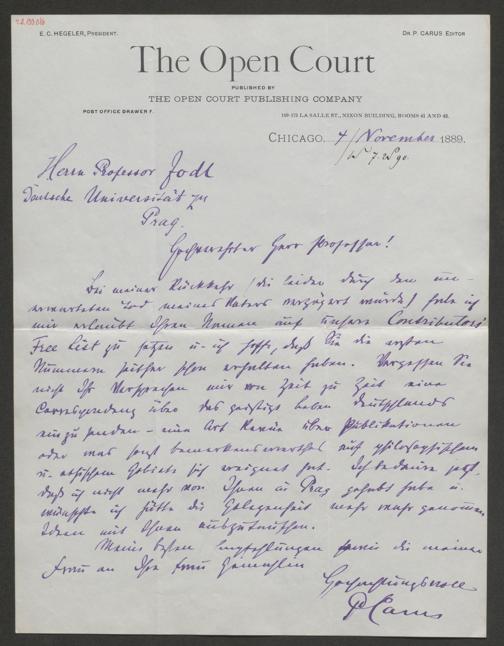 E. C. HEGELER, PRESIDENT.
DR. P. CARUS EDITOR
The Open Court
PUBLISHED BY
THE OPEN COURT PUBLISHING COMPANY
POST OFFICE DRAWER F.
169-175 LA SALLE ST., NIXON BUILDING, ROOMS 41 AND 42.
CHICAGO, 4/November 1889.
Herrn Professor Jodl
Deutsche Universität zu
Prag.
Hochverehrter Herr Professor!
Bei meiner Rückkehr (die leider durch den un-
erwarteten Tod meines Vaters verzögert wurde) habe ich
mir erlaubt Ihren Namen auf unsere Contributors'
Free List zu setzen u. ich hoffe, daß Sie die ersten
Nummern seither schon erhalten haben. Vergessen Sie
nicht Ihr Versprechen mir von Zeit zu Zeit eine
Correspondenz über das geistige Leben Deutschlands
einzusenden – eine Art Revue über Publikationen
oder was sonst bemerkenswerthes auf philosophischem
u. ethischem Gebiete sich ereignet hat. Ich bedaure sehr,
daß ich nicht mehr von Ihnen in Prag gehabt habe u.
wünschte ich hätte die Gelegenheit mehr wahr genommen
Ideen mit Ihnen auszutauschen.
Meine besten Empfehlungen sowie die meiner
Frau an Ihre Frau Gemahlin
Hochachtungsvoll
P Carus